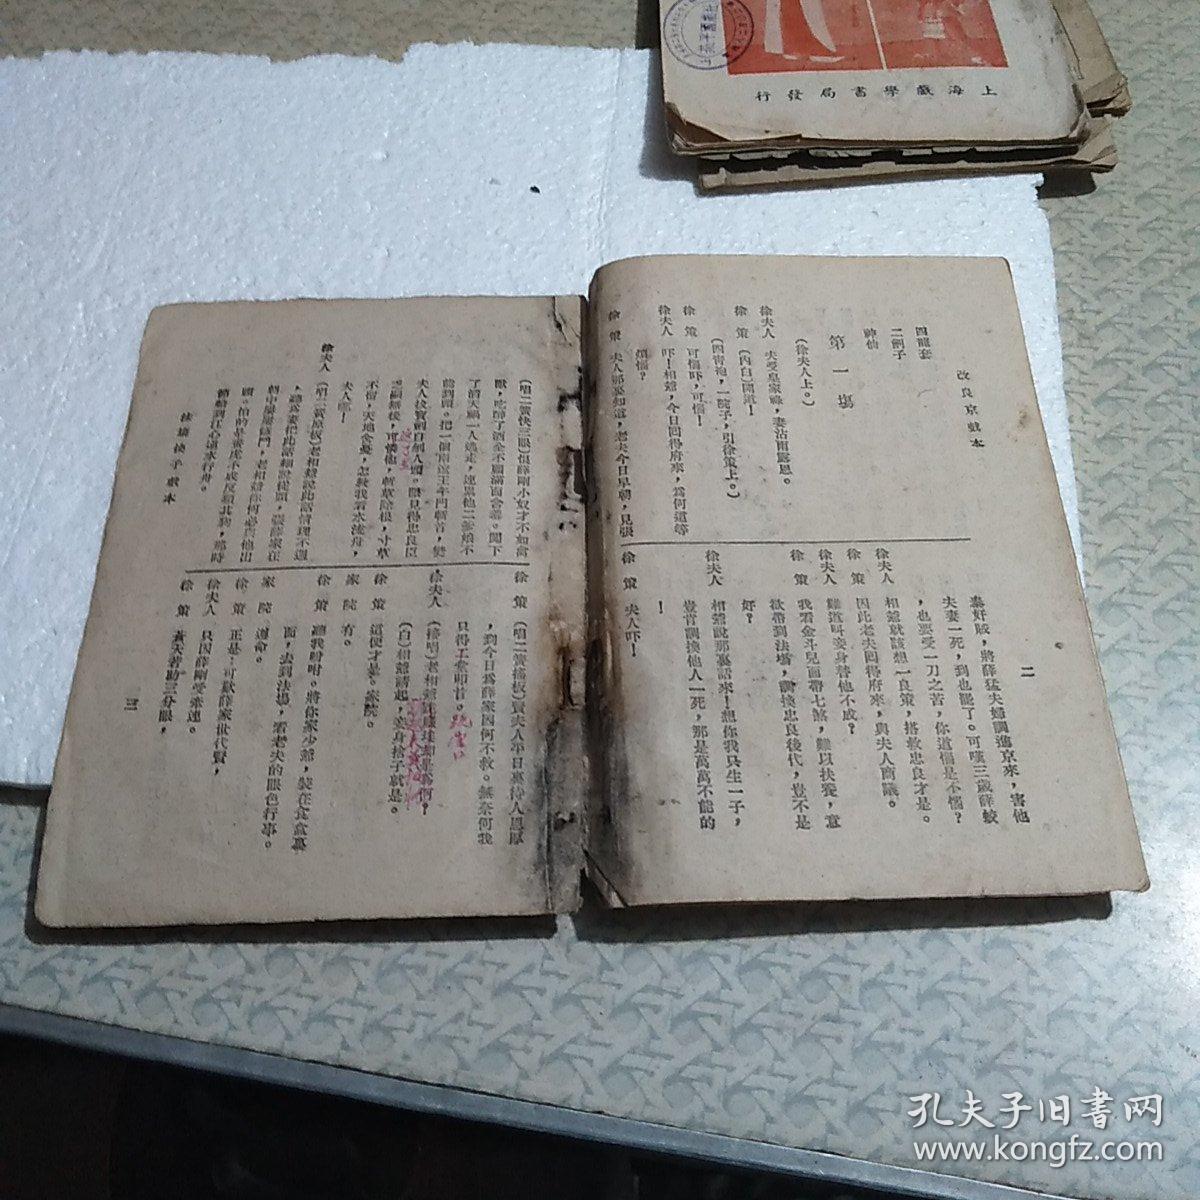 上海戲學書局發行
改良京戲本
二
四龍套
二劊子
神仙
第一場
(徐夫人上。)
徐夫人 夫受皇家祿，妻沾雨露恩。
徐 策 (內白)開道！
(四青袍，一院子，引徐策上。)
徐 策 可惱吓，可惱！
徐夫人 吓！相爺，今日回得府來，爲何這等
煩惱？
徐 策 夫人那裏知道，老夫今日早朝，見張
泰奸賊，將薛猛夫婦調進京來，害他
夫妻一死，到也罷了。可嘆三歲薛蛟
，也要受一刀之苦，你道惱是不惱？
徐夫人 相爺就該想一良策，搭救忠良才是。
徐 策 因此老夫回得府來，與夫人商議。
徐夫人 難道叫妾身替他不成？
徐 策 我看金斗兒面帶七煞，難以扶養，意
欲帶到法場，調換忠良後代，豈不是
好？
徐夫人 相爺說那裏話來！想你我只生一子，
豈肯調換他人一死，那是萬萬不能的
！
徐 策 夫人吓！
(唱二簧快三眼)恨薛剛小奴才不如禽
獸，吃醉了酒全不顧滿面含羞。闖下
了滔天禍一人逃走，連累他二爹娘不
能到頭。把一個兩遼王午門斬首，樊
夫人拔寶劍自刎人頭。眼見得忠良臣
不留，天地含憂，怎教我看水流舟，
夫人哪！
徐夫人 (唱二簧原板)老相爺說此話情理不週
頭。怕的是畫虎不成反類其狗，那時
節船到江心遠水行舟。
徐 策 (唱二簧搖板)賢夫人平日裏待人恩厚
，到今日爲薛家因何不救。無奈何我
只得
徐夫人 (接唱)老相爺
(白)相爺請起，妾身捨子就是。
徐 策 這便才是。家院。
家 院 有。
徐 策 聽我吩咐。將你家少爺，裝在食盒裏
面，去到法場，看老夫的眼色行事。
家 院 遵命。
徐 策 正是：可歎薛家世代賢，
徐夫人 只因薛剛受牽連。
徐 策 蒼天若助三分眼，
三
孔夫子旧書网
www.kongfz.com